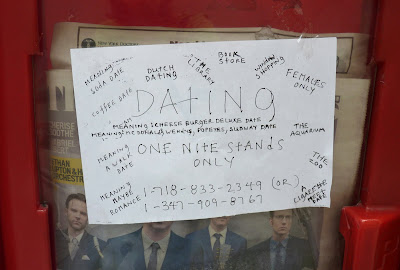 MEANING SODA DATE
DUTCH DATING
THE LIBRARY
BOOK STORE
WINDOW SHOPPING
FEMALES ONLY
COFFEE DATE
DATING
MEANING CHEESE BURGER DELUXE DATE
MEANING MC DONALDS, WENDYS, POPEYES, SUBWAY DATE
THE AQUARIUM
MEANING A WALK DATE
ONE NITE STANDS ONLY
THE ZOO
MEANING MAYBE ROMANCE
1-718-833-2349 (OR)
1-347-909-8767
A
DATE
CHERISE BOOTHE
BRIEL
THAN
& H
RCHESTR